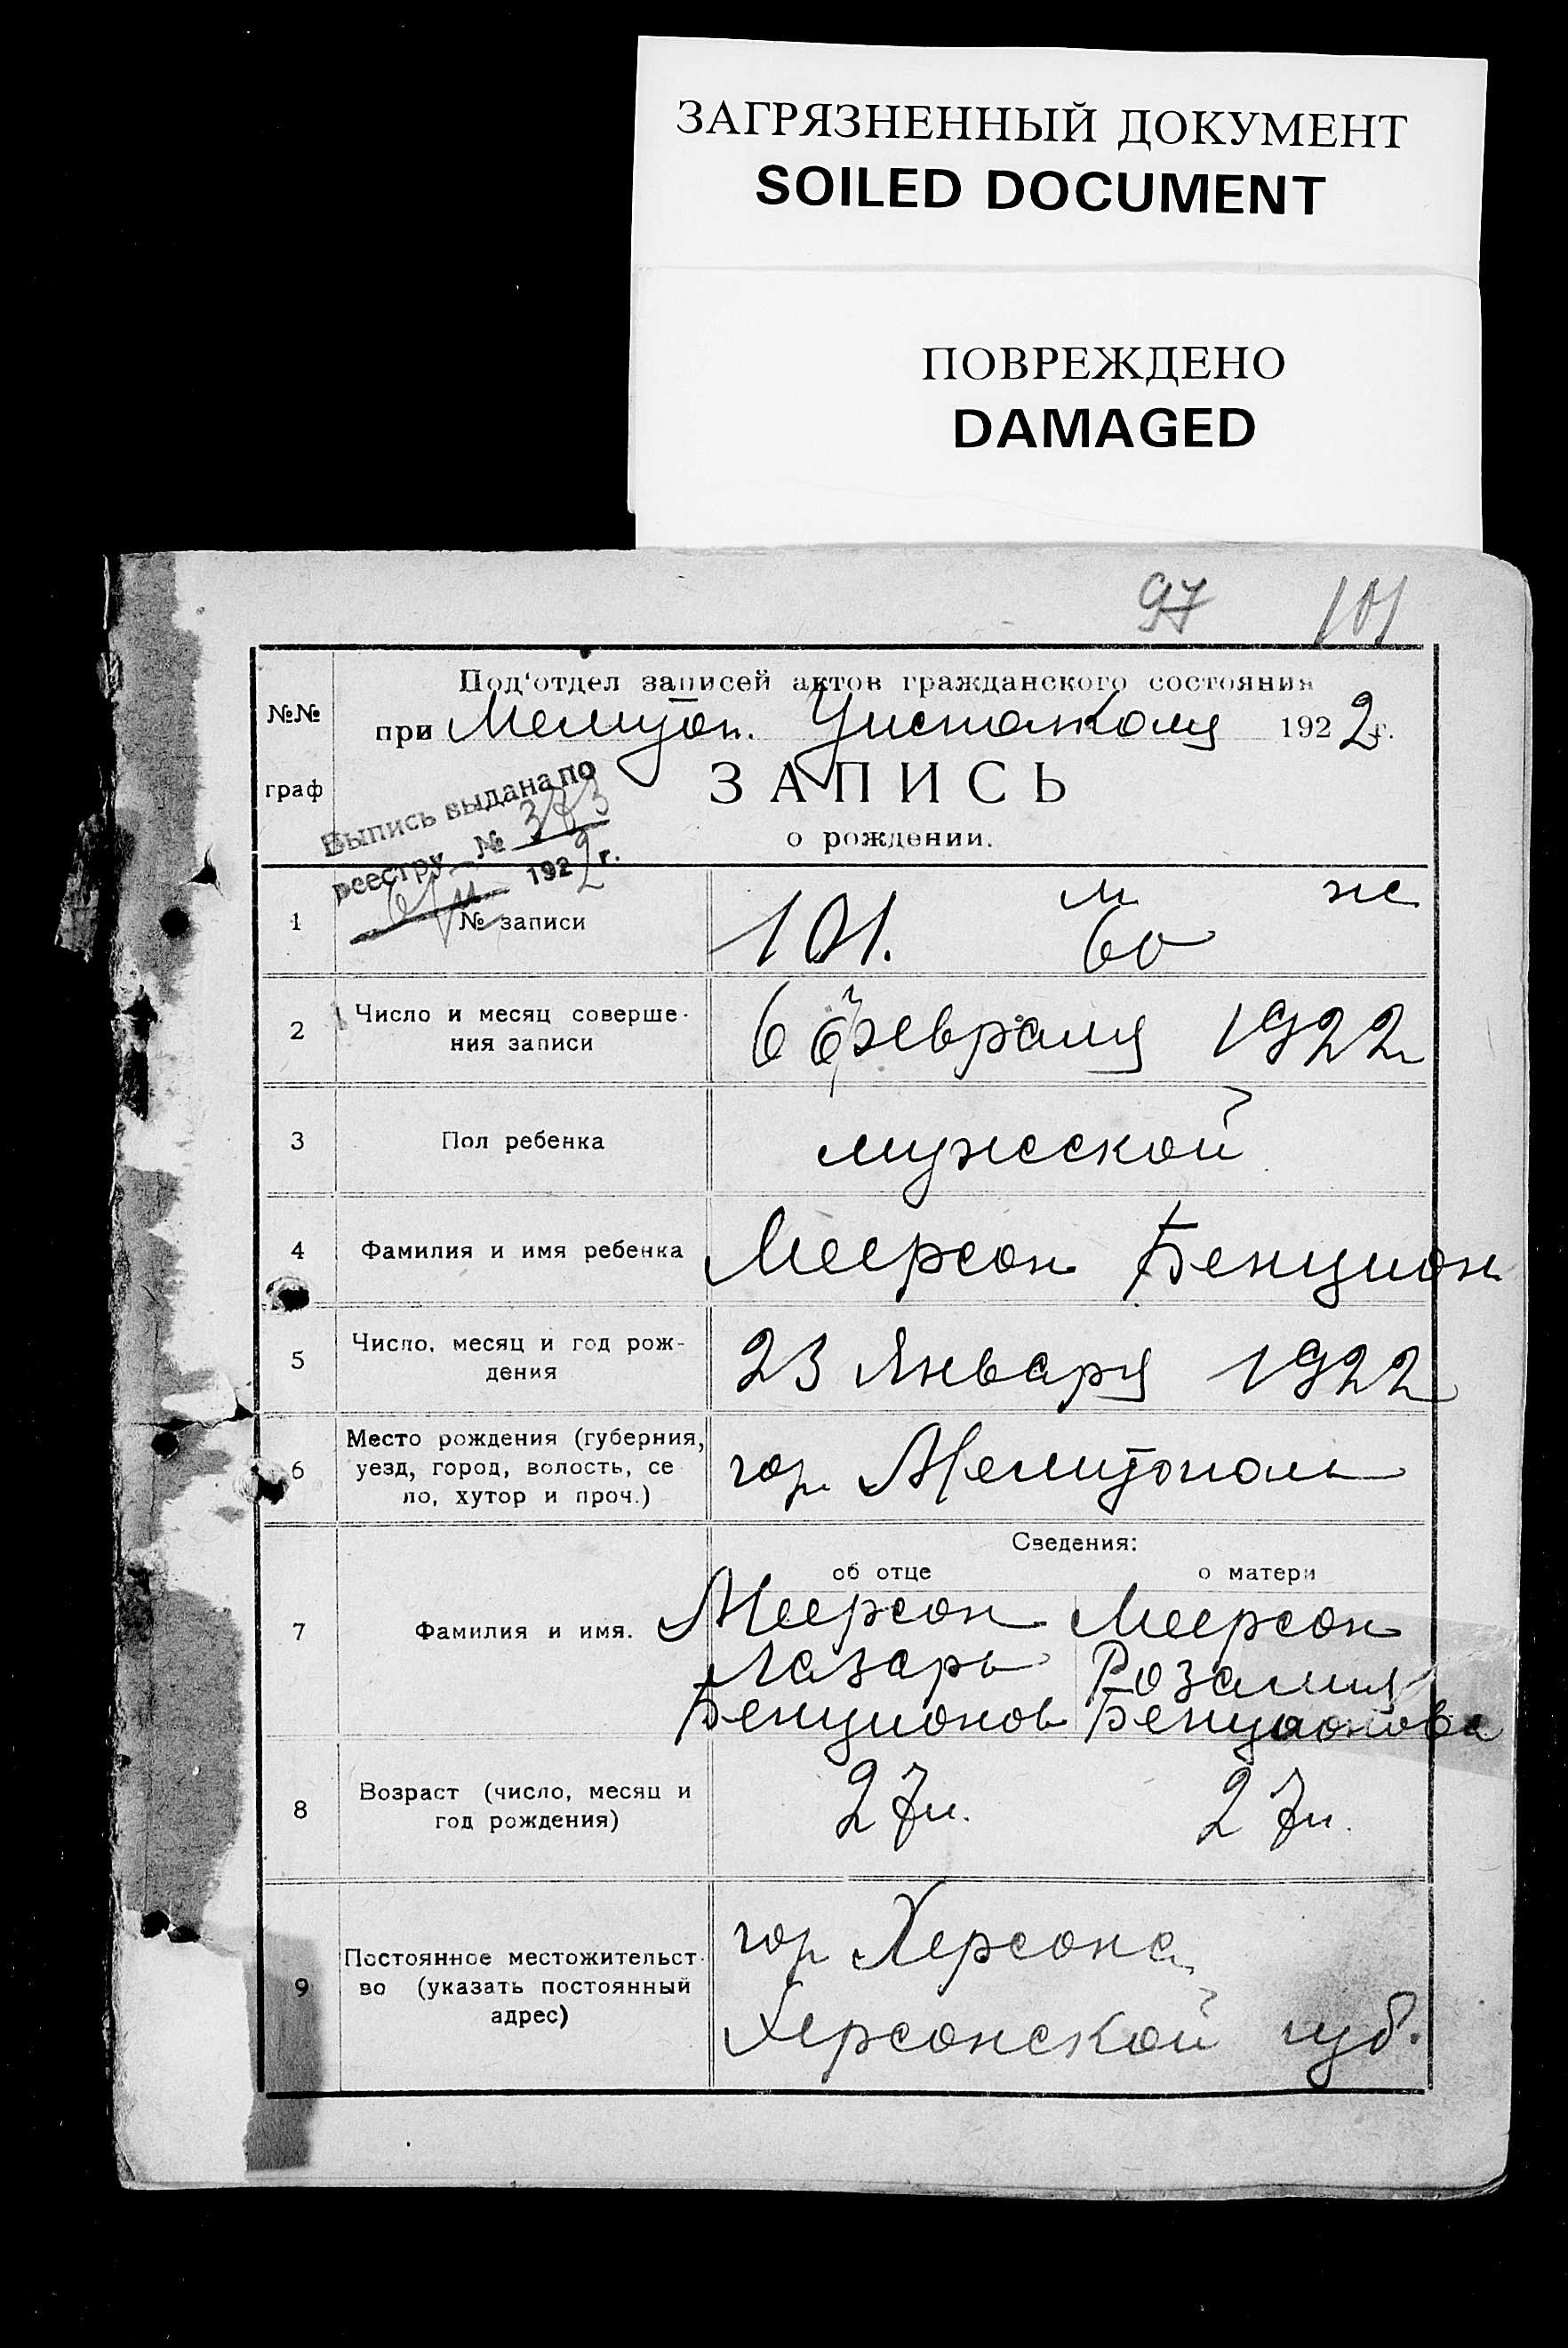 ЗАГРЯЗНЕННЫЙ ДОКУМЕНТ
SOILED DOCUMENT
ПОВРЕЖДЕНО
DAMAGED
97 101
№№ граф
Под'отдел записей актов гражданского состояния
при Мелитоп. 1922г.
ЗАПИСЬ
о рождении.
Выпись выдана по
реестру № 1922г.
1 № записи 101. м 60 ж
2 Число и месяц соверше-
ния записи 6 февраля 1922
3 Пол ребенка мужской
4 Фамилия и имя ребенка Меерсон Бенцион
5 Число, месяц и год рож-
дения 23 Января 1922
6 Место рождения (губерния,
уезд, город, волость, се
ло, хутор и проч.) гор Мелитополь
Сведения:
об отце о матери
7 Фамилия и имя. Меерсон Меерсон
Лазарь Розалия
Бенционов Бенционова
8 Возраст (число, месяц и
год рождения) 27л. 27л.
9 Постоянное местожительст-
во (указать постоянный
адрес) гор Херсона
Херсонской губ.